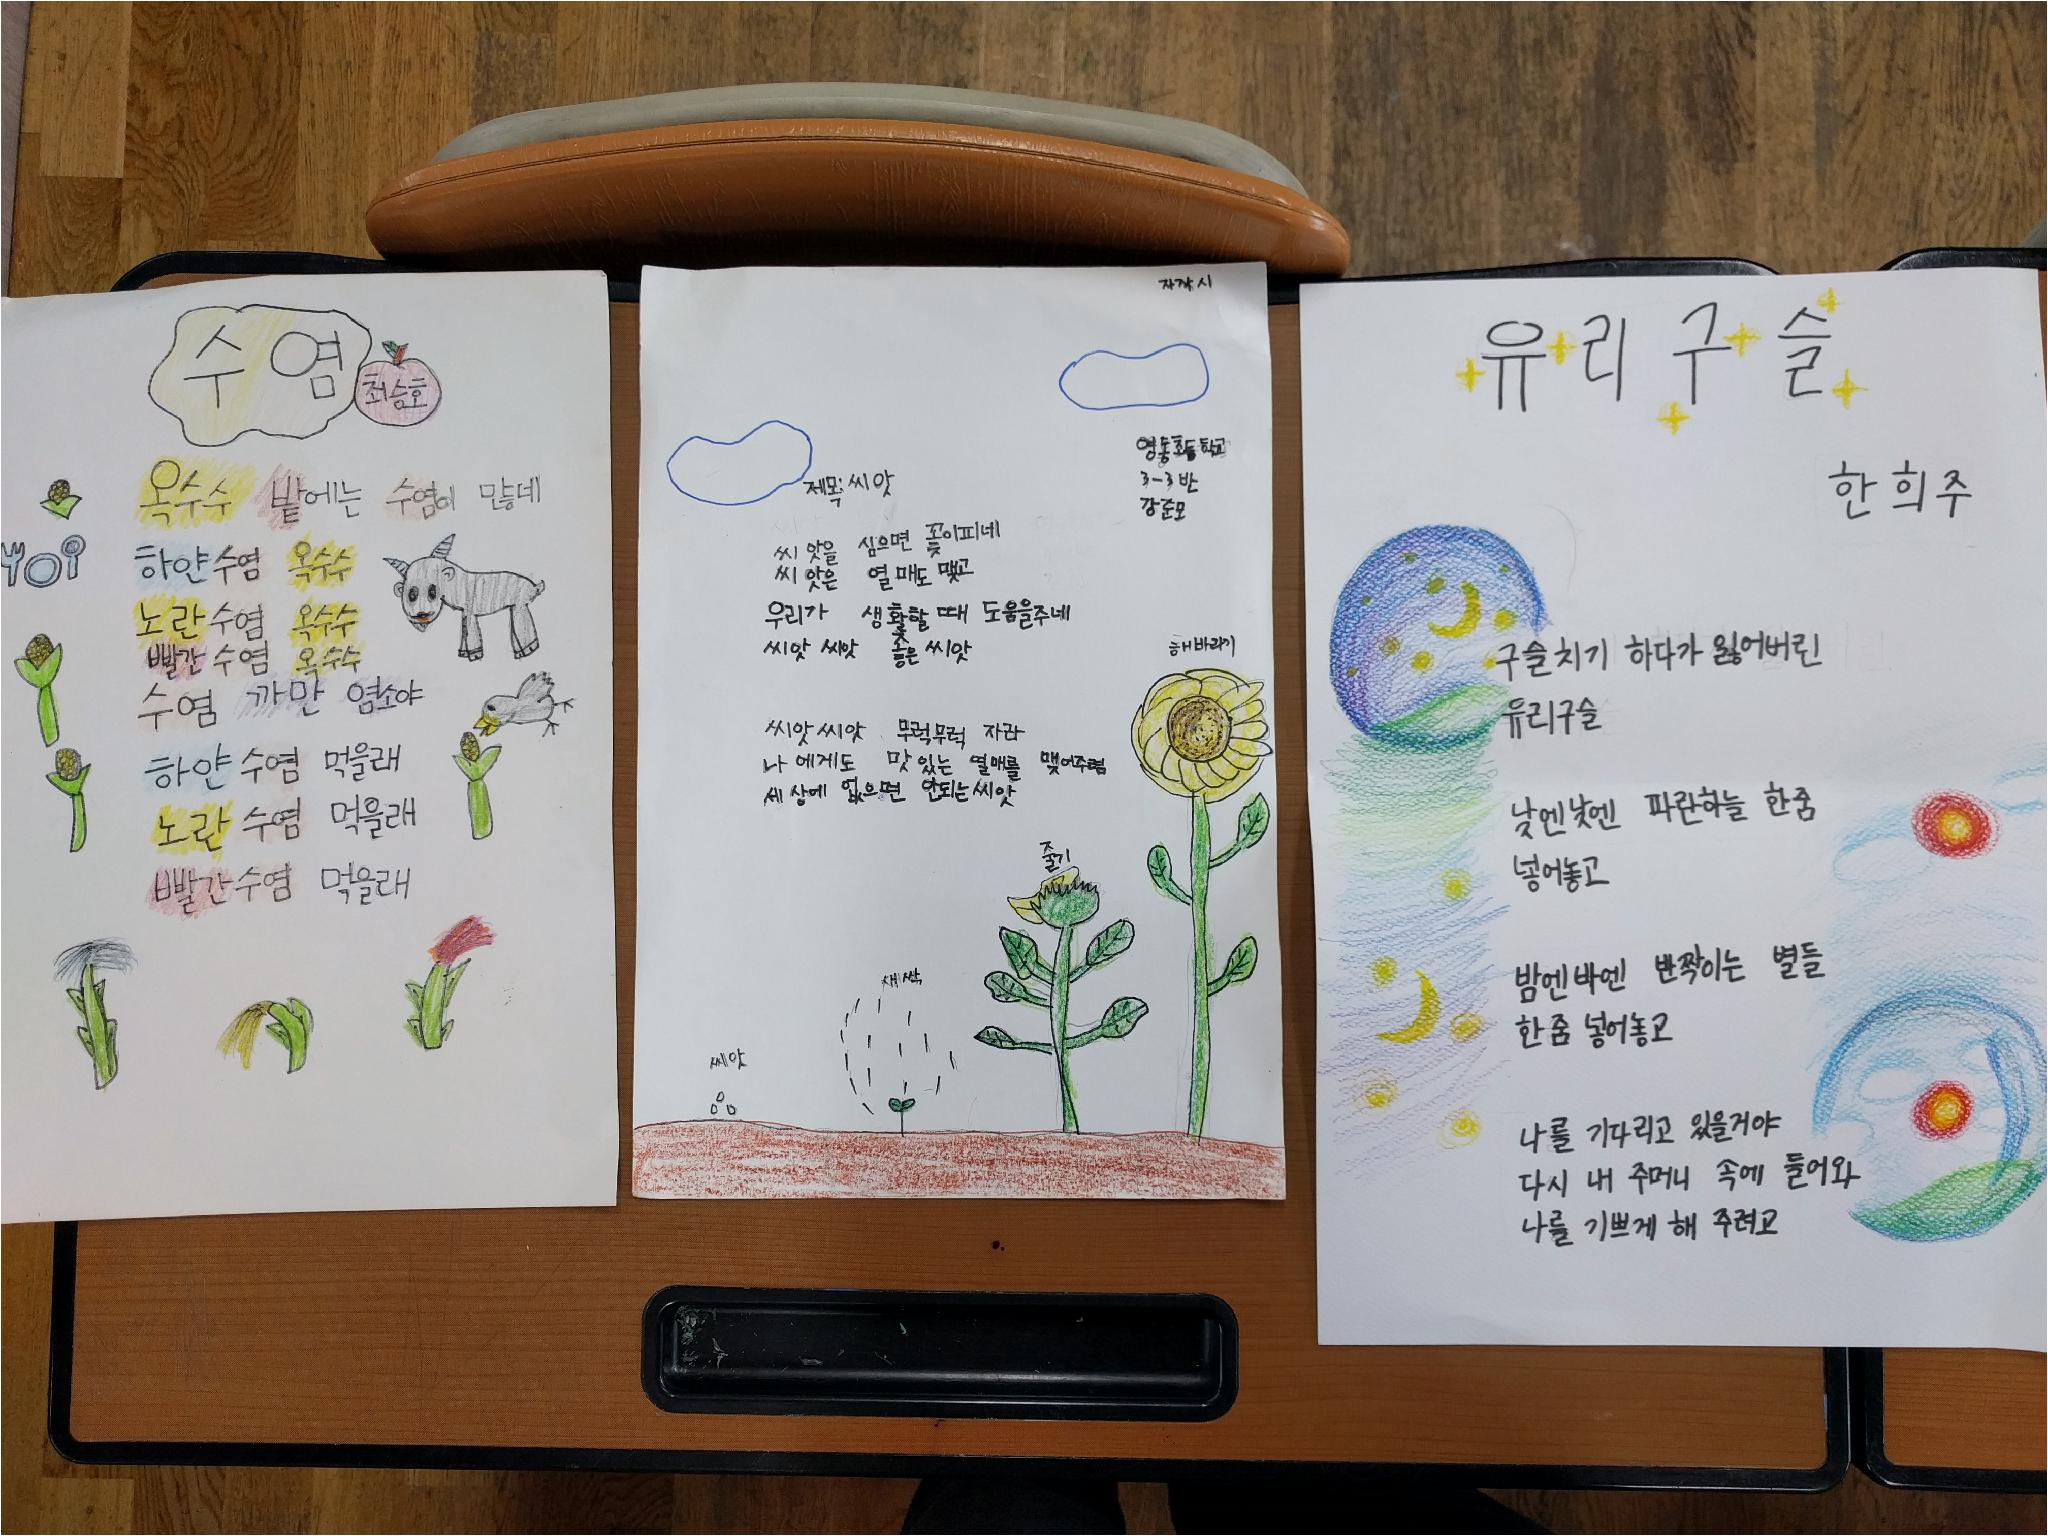 수염
최승호
옥수수 밭에는 수염이 많네
하얀수염 옥수수
노란수염 옥수수
빨간수염 옥수수
수염 까만 염소야
하얀수염 먹을래
노란수염 먹을래
빨간수염 먹을래
자작시
영동초등학교
3-3반
강준모
제목:씨앗
씨앗을 심으면 꽃이피네
씨앗은 열매도 맺고
우리가 생활할때 도움을주네
씨앗 씨앗 좋은 씨앗
씨앗씨앗 무럭무럭 자라
나에게도 맛있는 열매를 맺어주렴
세상에 없으면 안되는씨앗
해바라기
줄기
새싹
씨앗
유리구슬
한희주
구슬치기 하다가 잃어버린
유리구슬
낮엔낮엔 파란하늘 한줌
넣어놓고
밤엔바엔 반짝이는 별들
한줌 넣어놓고
나를 기다리고 있을거야
다시 내 주머니 속에 들어와
나를 기쁘게 해 주려고